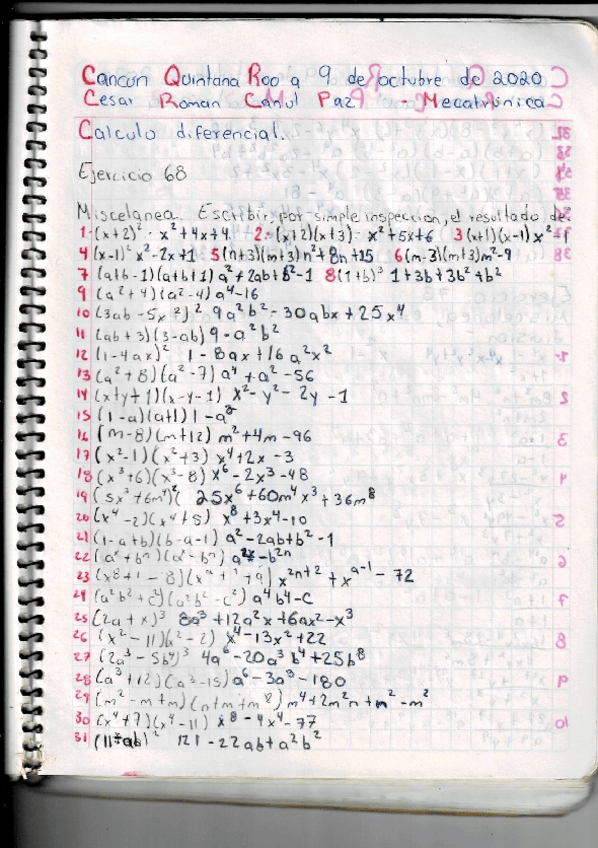 Cancún Quintana Roo a 9 de octubre de 2020
Cesar Roman Canul Paz - Mecatrónica
Calculo diferencial.
Ejercicio 68
Miscelanea. Escribir, por simple inspeccion, el resultado de:
1- (x+2)² = x²+4x+4. 2- (x+2)(x+3) = x²+5x+6 3 (x+1)(x-1) x²-1
4 (x-1)² x²-2x+1 5 (n+3)(m+3) n²+8n+15 6 (m-3)(m+3) m²-9
7 (a+b-1)(a+b+1) a²+2ab+b²-1 8 (1+b)³ 1+3b+3b²+b²
9 (a²+4)(a²-4) a⁴-16
10 (3ab-5x²)² 9a²b²-30abx+25x⁴
11 (ab+3)(3-ab) 9-a²b²
12 (1-4ax)² 1-8ax+16a²x²
13 (a²+8)(a²-7) a⁴+a²-56
14 (x+y+1)(x-y-1) x²-y²-2y-1
15 (1-a)(a+1) 1-a²
16 (m-8)(m+12) m²+4m-96
17 (x²-1)(x²+3) x⁴+2x-3
18 (x³+6)(x³-8) x⁶-2x³-48
19 (5x³+6m⁴)² 25x⁶+60m⁴x³+36m⁸
20 (x⁴-2)(x⁴+5) x⁸+3x⁴-10
21 (1-a+b)(b-a-1) a²-2ab+b²-1
22 (aˣ+bⁿ)(aˣ-bⁿ) a²ˣ-b²ⁿ
23 x²ⁿ⁺²+xᵃ⁻¹-72
24 (a²b²+c²)(a²b²-c²) a⁴b⁴-c
25 (2a+x)³ 8a³+12a²x+6ax²-x³
26 (x²-11)(x²-2) x⁴-13x²+22
27 (2a³-5b⁴)³ 4a⁶-20a³b⁴+25b⁸
28 (a³+12)(a³-15) a⁶-3a³-180
29 (m²-m+m)(n+m+m²) m⁴+2m²n+m²-m²
30 (x⁴+7)(x⁴-11) x⁸-4x⁴-77
31 (11-ab)² 121-22ab+a²b²